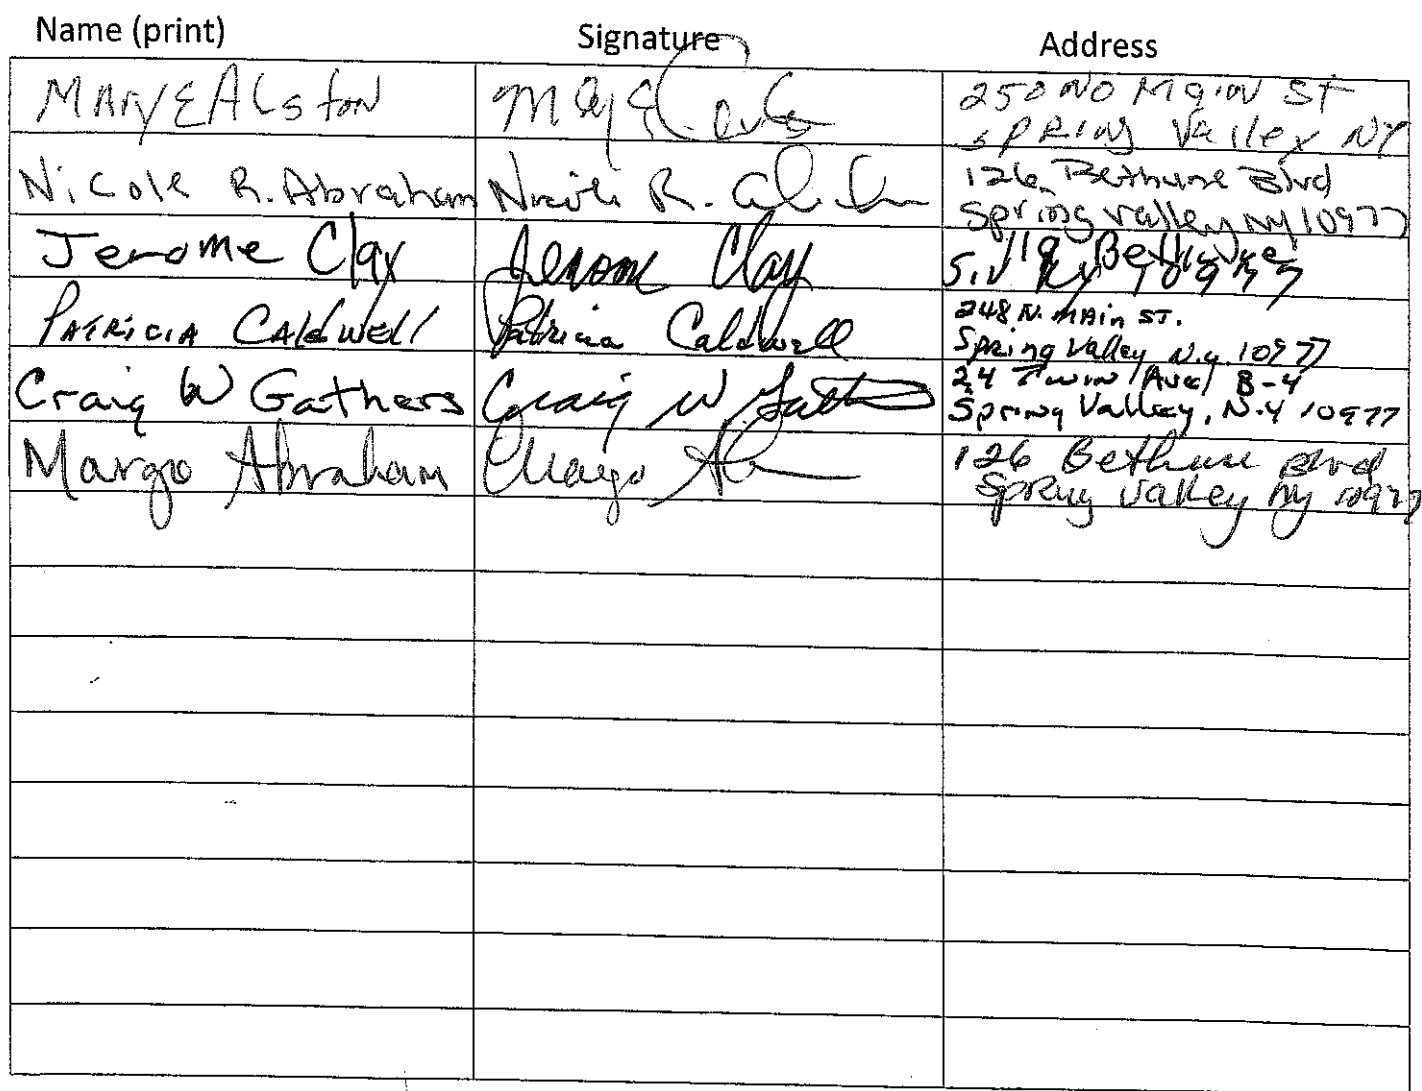 Name (print) Signature Address
Mary E Alston
250 NO Main St
Spring Valley NY
Nicole R. Abraham Nicole R.
126 Bethune Blvd
Spring Valley NY 10977
Jerome Clay Jerome Clay
Bethune
S.V NY 10977
PATRICIA CALDWELL Patricia Caldwell
248 N. MAin ST.
Spring Valley N.Y. 10977
Craig W Gathers Craig W
24 Twin Ave B-4
Spring Valley, N.Y 10977
Margo Abraham Margo
126 Bethune Blvd
Spring Valley NY 10977